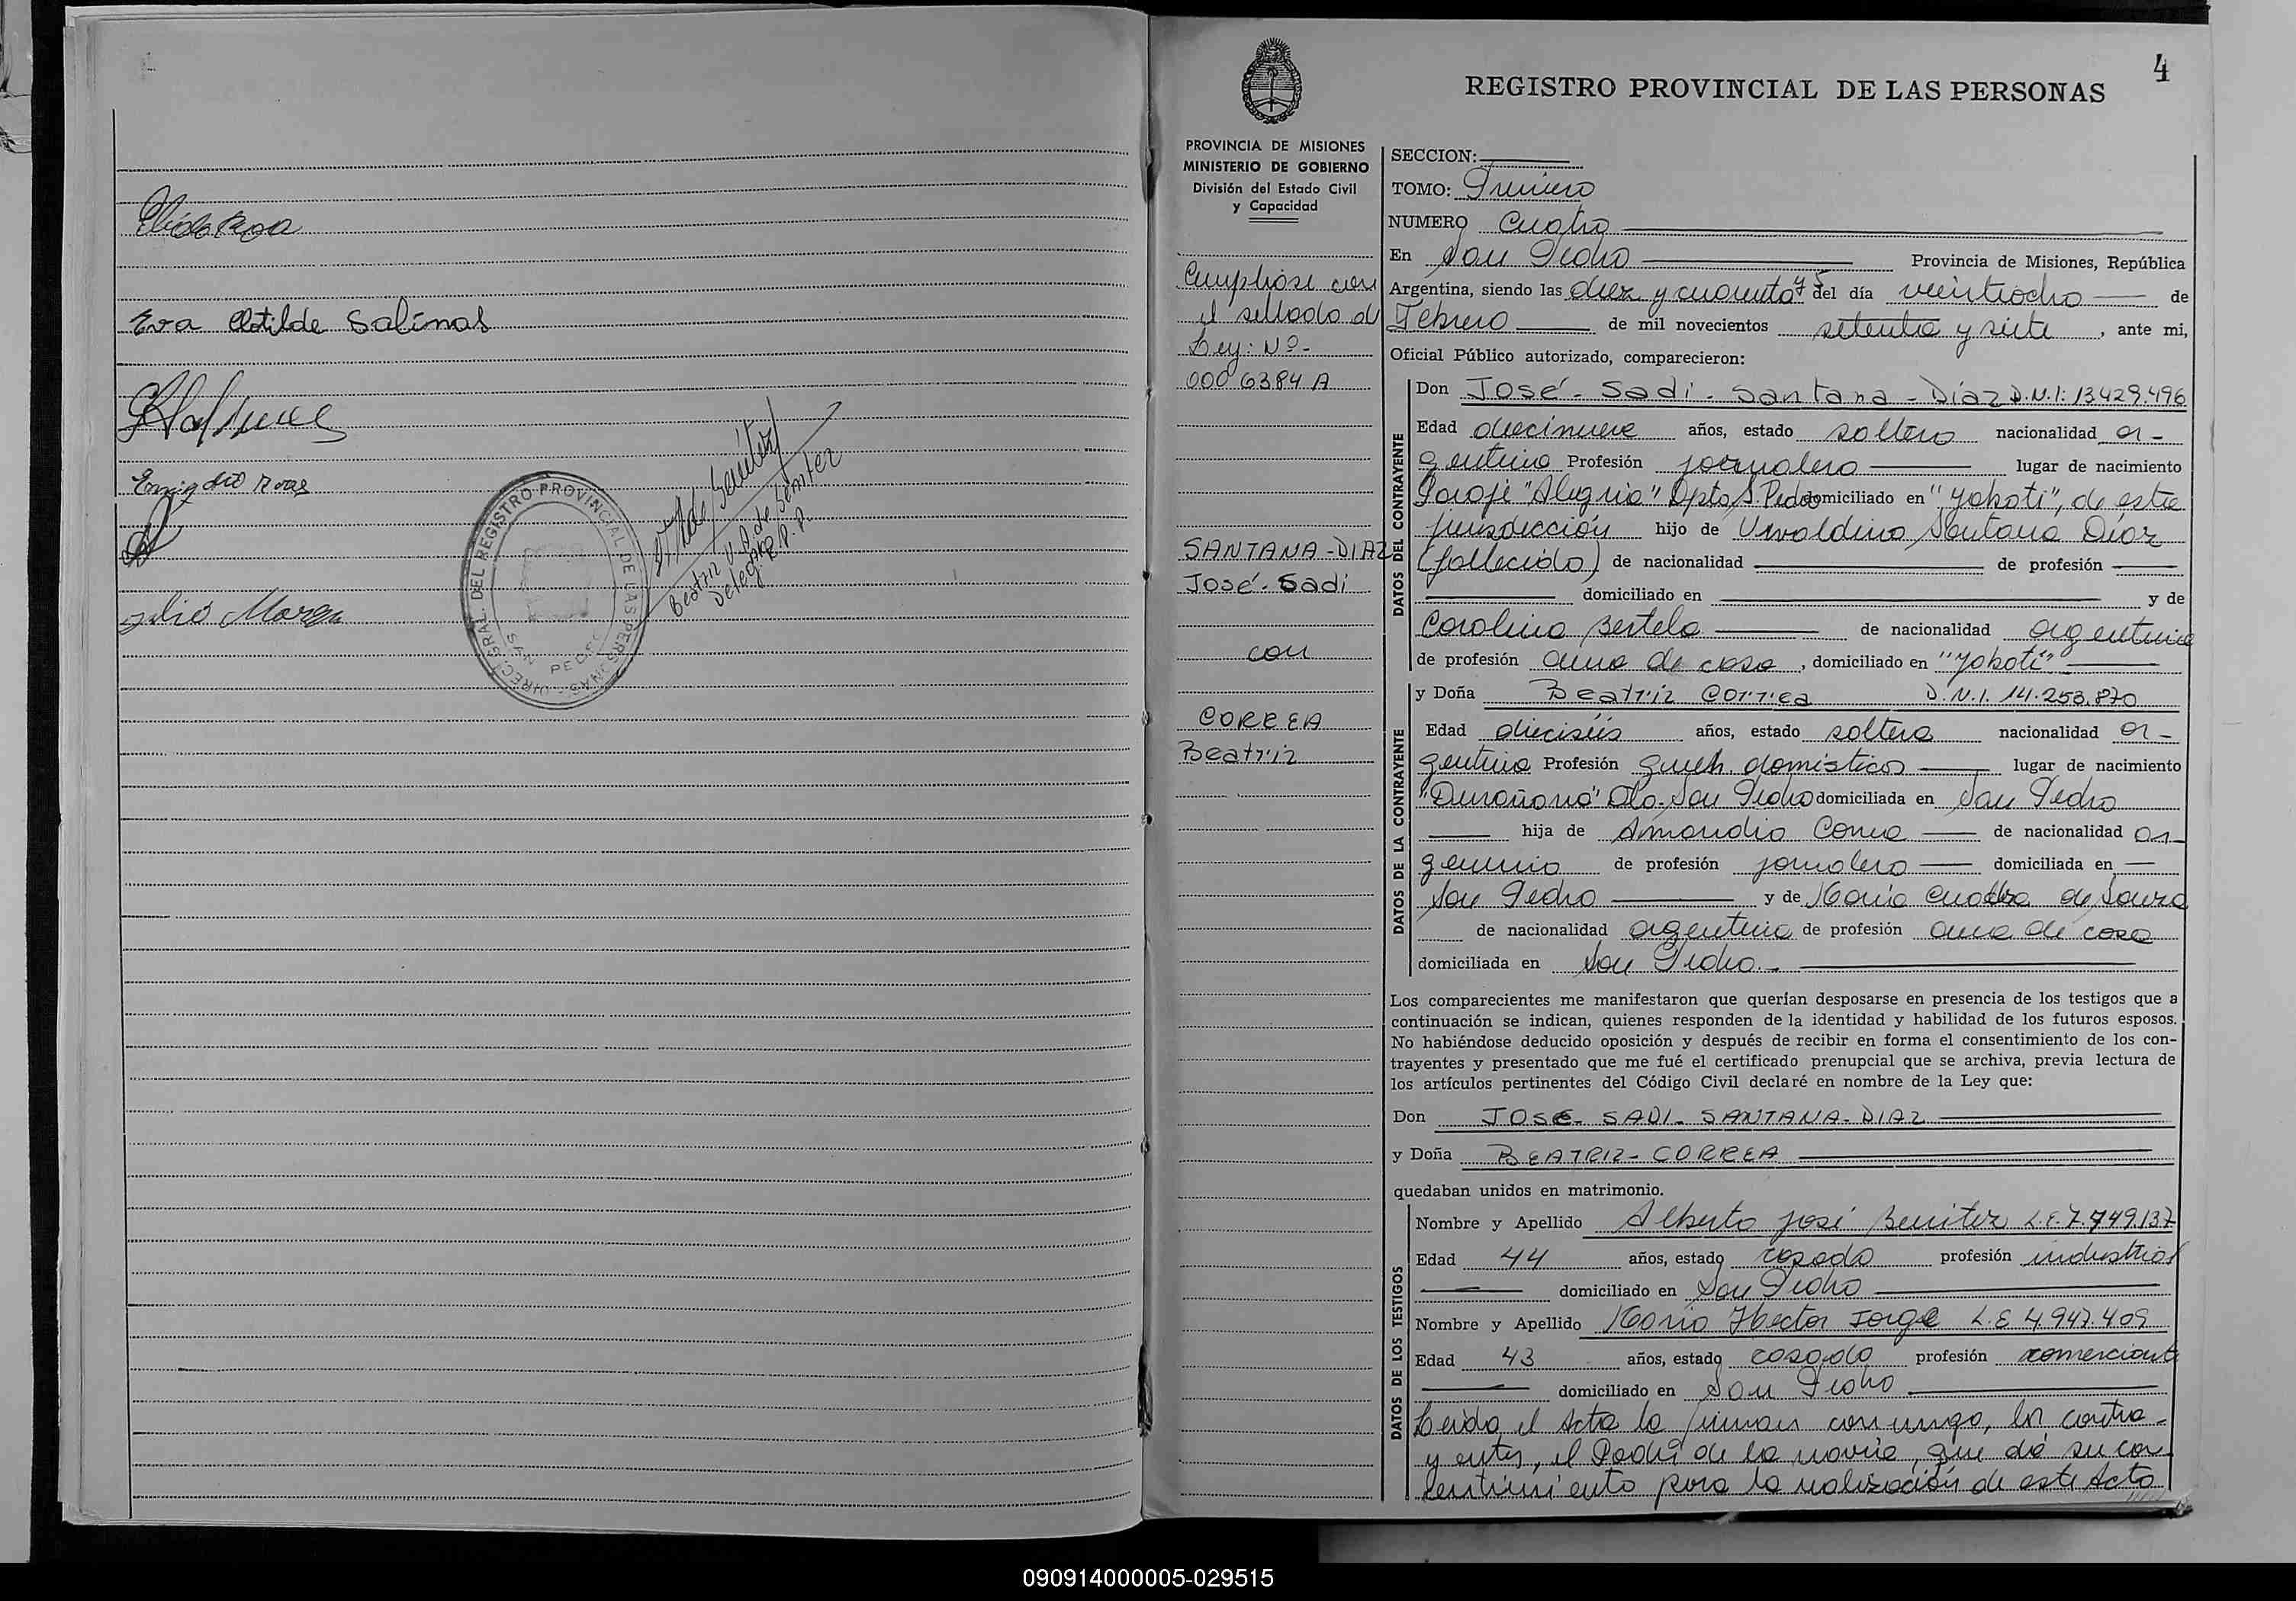 Elido Rosa
Eva Clotilde Salinas
Emigdio Rosa
Julio Morga
DIREC. GRAL. DEL REGISTRO PROVINCIAL DE LAS PERSONAS
SAN PEDRO
Beatriz V. A. de Benitez
Delegada R.P.P.
4
REGISTRO PROVINCIAL DE LAS PERSONAS
PROVINCIA DE MISIONES
MINISTERIO DE GOBIERNO
División del Estado Civil
y Capacidad
Cumplióse con
el sellado de
Ley: Nº-
0006384 A
SANTANA-DIAZ
José-Sadi
con
CORREA
Beatriz
SECCION:
TOMO: Primero
NUMERO Cuatro
En San Pedro Provincia de Misiones, República
Argentina, siendo las diez y cuarenta y 5 del día veintiocho de
Febrero de mil novecientos setenta y siete, ante mi,
Oficial Público autorizado, comparecieron:
DATOS DEL CONTRAYENTE
Don José-Sadi-Santana-Díaz D.N.I: 13429.496
Edad diecinueve años, estado soltero nacionalidad ar-
gentino Profesión jornalero lugar de nacimiento
Paraje "Alegria" Dpto S. Pedro domiciliado en "Yaboti", de esta
jurisdicción hijo de Uvaldino Santana Díaz
(fallecido) de nacionalidad de profesión
domiciliado en y de
Carolina Bertelo de nacionalidad argentina
de profesión ama de casa, domiciliado en "Yaboti"
DATOS DE LA CONTRAYENTE
y Doña Beatriz Correa D.N.I. 14.253.870
Edad dieciséis años, estado soltera nacionalidad ar-
gentina Profesión queh. domésticos lugar de nacimiento
San Pedro domiciliada en San Pedro
hija de Amandio Correa de nacionalidad ar-
gentino de profesión jornalero domiciliada en
San Pedro y de María de Souza
de nacionalidad argentina de profesión ama de casa
domiciliada en San Pedro.-
Los comparecientes me manifestaron que querían desposarse en presencia de los testigos que a
continuación se indican, quienes responden de la identidad y habilidad de los futuros esposos.
No habiéndose deducido oposición y después de recibir en forma el consentimiento de los con-
trayentes y presentado que me fué el certificado prenupcial que se archiva, previa lectura de
los artículos pertinentes del Código Civil declaré en nombre de la Ley que:
Don JOSE-SADI-SANTANA-DIAZ
y Doña BEATRIZ-CORREA
quedaban unidos en matrimonio.
DATOS DE LOS TESTIGOS
Nombre y Apellido Alberto José Benitez L.E.7.749.137
Edad 44 años, estado casado profesión industrial
domiciliado en San Pedro
Nombre y Apellido Mario Hector Jorge L.E 4.947.409
Edad 43 años, estado casado profesión comerciante
domiciliado en San Pedro
Leída el Acta la firman conmigo, los contra-
yentes, el Padre de la novia, que dá su con-
sentimiento para la realización de este Acto
090914000005-029515